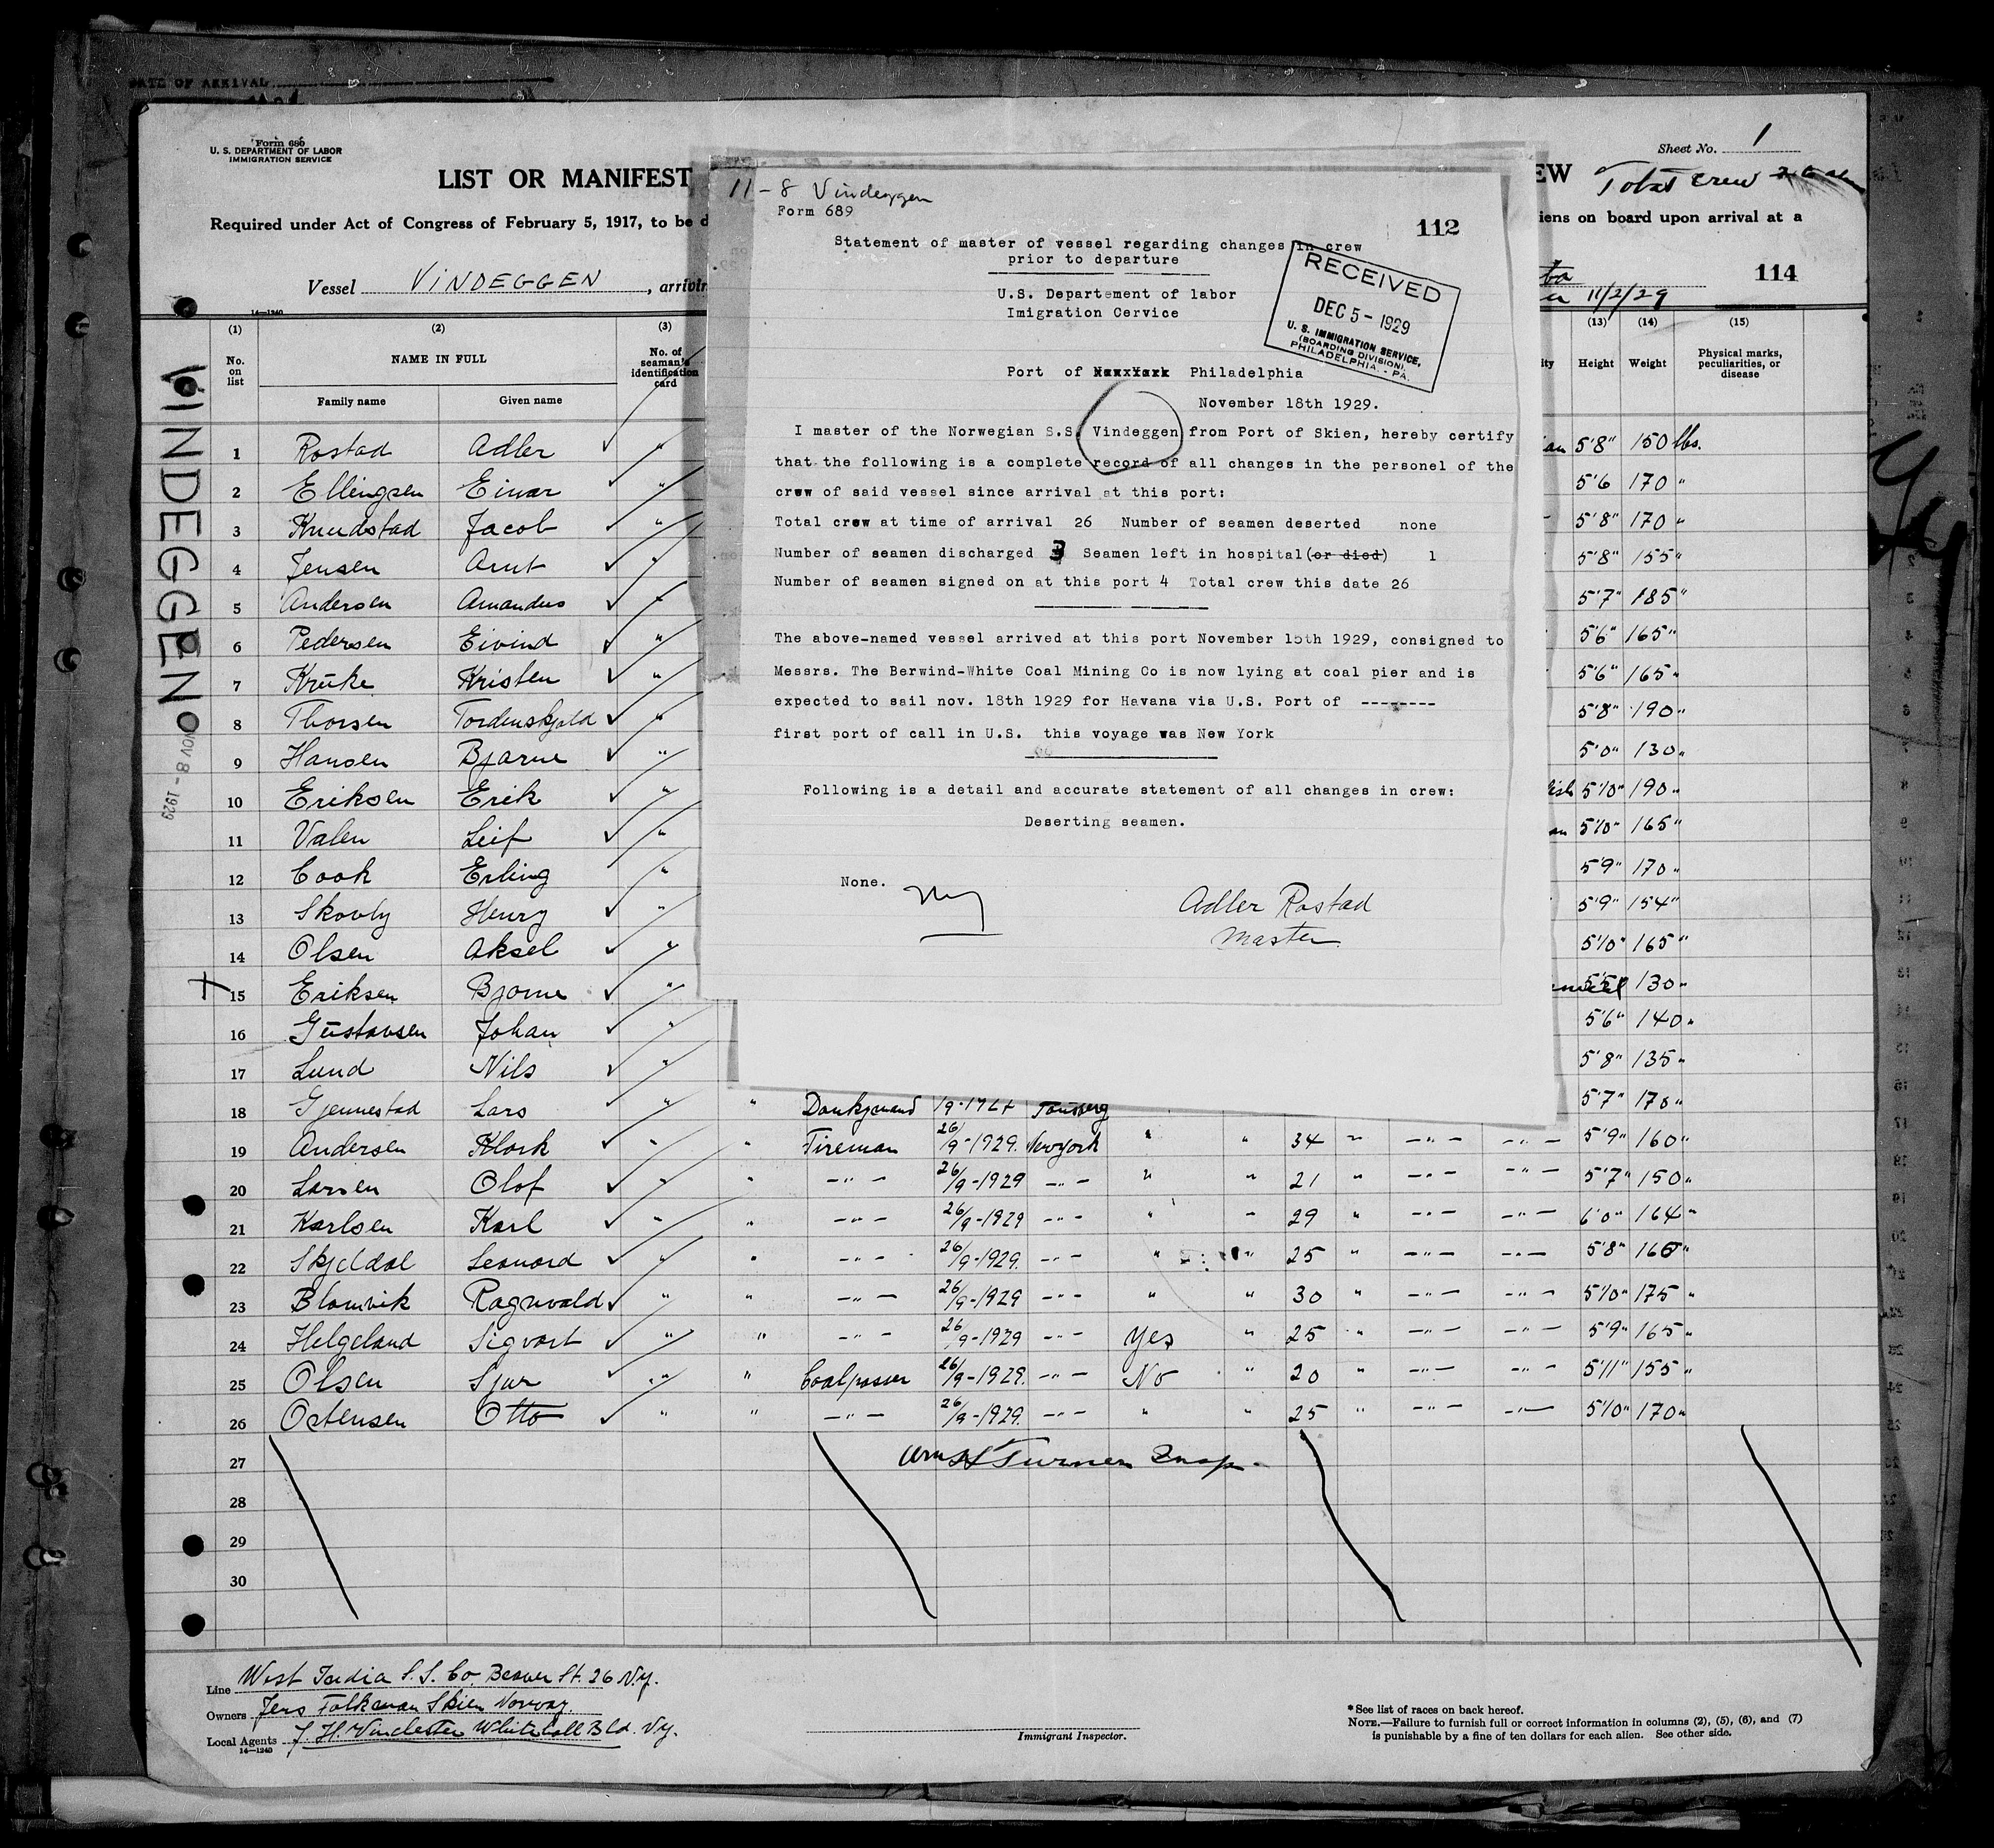 DATE OF ARRIVAL
Form 680
U. S. DEPARTMENT OF LABOR
IMMIGRATION SERVICE
Sheet No. 1
LIST OR MANIFEST
EW Total crew
Required under Act of Congress of February 5, 1917, to be d
iens on board upon arrival at a
Vessel VINDEGGEN, arrivin
114
11/2/29
14—1240
(1) (2) (3) (13) (14) (15)
No. on list
NAME IN FULL
Family name Given name
No. of seaman's identification card
ity Height Weight Physical marks, peculiarities, or disease
VINDEGGEN
NOV 8 - 1929
11-8 Vindeggen
Form 689
112
Statement of master of vessel regarding changes in crew
prior to departure
U.S. Departement of labor
Imigration Cervice
RECEIVED
DEC 5 - 1929
U. S. IMMIGRATION SERVICE,
(BOARDING DIVISION)
PHILADELPHIA - PA.
Port of NewxYork Philadelphia
November 18th 1929.
I master of the Norwegian S.S. Vindeggen from Port of Skien, hereby certify
that the following is a complete record of all changes in the personel of the
crew of said vessel since arrival at this port:
Total crew at time of arrival 26 Number of seamen deserted none
Number of seamen discharged 3 Seamen left in hospital(or died) 1
Number of seamen signed on at this port 4 Total crew this date 26
The above-named vessel arrived at this port November 15th 1929, consigned to
Messrs. The Berwind-White Coal Mining Co is now lying at coal pier and is
expected to sail nov. 18th 1929 for Havana via U.S. Port of --------
first port of call in U.S. this voyage was New York
Following is a detail and accurate statement of all changes in crew:
Deserting seamen.
None.
Adler Rostad
Master
1 Rostad Adler ✓ " an 5'8" 150 lbs.
2 Ellingsen Einar ✓ " 5'6 170 "
3 Knudstad Jacob ✓ " 5'8" 170 "
4 Jensen Arnt ✓ " 5'8" 155 "
5 Andersen Amandus ✓ " 5'7" 185 "
6 Pedersen Eivind ✓ " 5'6" 165 "
7 Kruke Kristen ✓ " 5'6" 165 "
8 Thorsen Tordenskjold ✓ " 5'8" 190 "
9 Hansen Bjarne ✓ " 5'0" 130 "
10 Eriksen Erik ✓ " ish 5'10" 190 "
11 Valen Leif ✓ " an 5'10" 165 "
12 Cook Erling " 5'9" 170 "
13 Skovly Henry ✓ " 5'9" 154 "
14 Olsen Aksel ✓ " 5'10" 165 "
+ 15 Eriksen Bjarne ✓ " 5'5" 130 "
16 Gustavsen Johan ✓ " 5'6" 140 "
17 Lund Nils ✓ " 5'8" 135 "
18 Gjennestad Lars ✓ " " Donkeymand Tønsberg 5'7" 170 "
19 Andersen Klark ✓ " " Fireman 26/9-1929. Newyork " " 34 " -"- -"- 5'9" 160 "
20 Larsen Olof ✓ " " -"- 26/9-1929 -"- " " 21 " -"- -"- 5'7" 150 "
21 Karlsen Karl ✓ " " -"- 26/9-1929 -"- " " 29 " -"- -"- 6'0" 164 "
22 Skjeldal Leonard ✓ " " -"- 26/9-1929. -"- " " 25 " -"- -"- 5'8" 160 "
23 Blomvik Ragnvald ✓ " " -"- 26/9-1929 -"- " " 30 " -"- -"- 5'10" 175 "
24 Helgeland Sigvart ✓ " " -"- 26/9-1929 -"- Yes " 25 " -"- -"- 5'9" 165 "
25 Olsen Sjur ✓ " " Coalpasser 26/9-1929. -"- No " 20 " -"- -"- 5'11" 155 "
26 Ostensen Otto ✓ " " -"- 26/9-1929. -"- " " 25 " -"- -"- 5'10" 170 "
27 Turner Insp.
28
29
30
Line West India S.S. Co. Beaver St. 26 N.y.
Owners Jens Folkman Skien Norway.
Local Agents J. H. Winchester Whitehall Bld. Ny.
14—1240
Immigrant Inspector.
* See list of races on back hereof.
NOTE.—Failure to furnish full or correct information in columns (2), (5), (6), and (7)
is punishable by a fine of ten dollars for each alien. See other side.